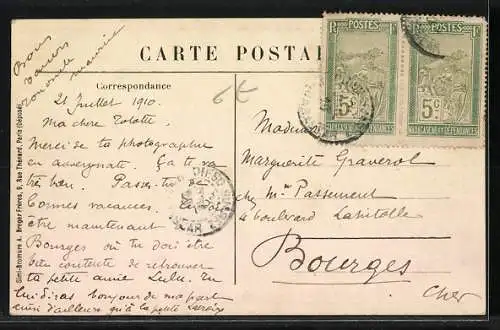 CARTE POSTAL
Correspondance
21 Juillet 1910.
Ma chère Tolotte
Merci de ta photographie
en auvergnate. Ça te va
très bien. Passes-tu
bonnes vacances.
être maintenant
Bourges où tu dois être
bien contente de retrouver
ta petite amie Lulu. Tu
lui diras bonjour de ma part
ainsi d'ailleurs qu'à la petite
Bons
baisers
Maurice
6f
POSTES
5c
5c
MADAGASCAR et DÉPENDANCES
MADAGASCAR et DÉPENDANCES
DIEGO
Mademoiselle
Marguerite Graverol
chez Mme Passement
4 boulevard Lahitolle
Bourges
Cher
Simili-Bromure A. Breger Frères, 9, Rue Thénard, Paris (déposé)